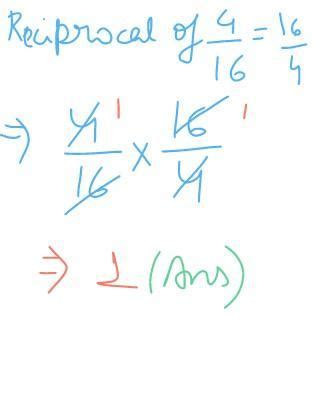 Reciprocal of 4/16 = 16/4
⇒ 4/16 1 × 16/4 1
⇒ 1 (Ans)